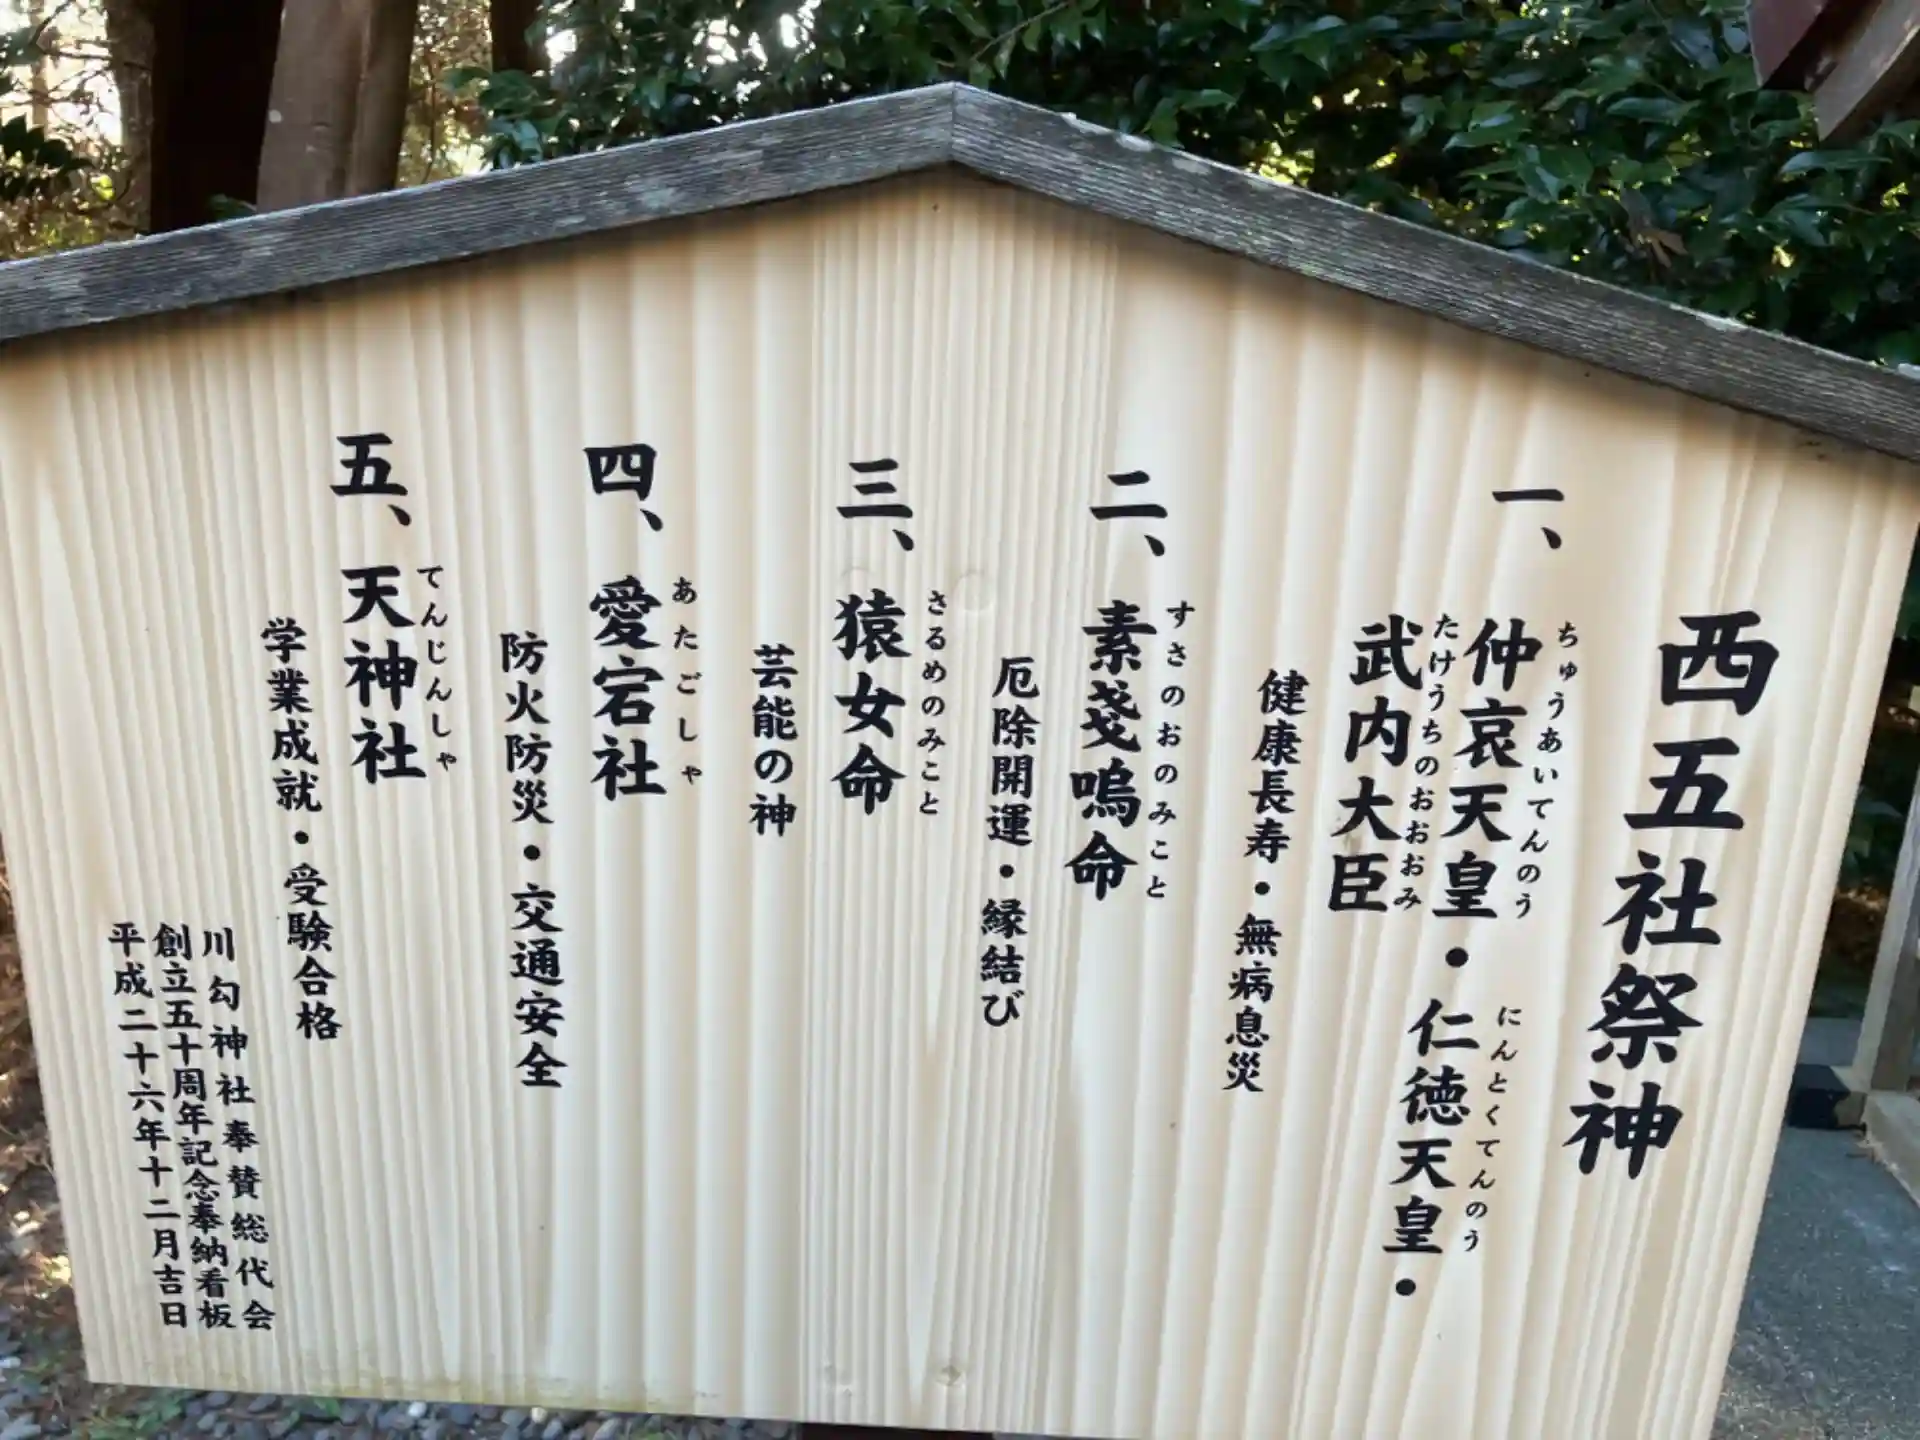 西五社祭神
一、仲哀天皇・仁徳天皇・
ちゅうあいてんのう
にんとくてんのう
武内大臣
たけうちのおおおみ
健康長寿・無病息災
二、素戔嗚命
すさのおのみこと
厄除開運・縁結び
三、猿女命
さるめのみこと
芸能の神
四、愛宕社
あたごしゃ
防火防災・交通安全
五、天神社
てんじんしゃ
学業成就・受験合格
川勾神社奉賛総代会
創立五十周年記念奉納看板
平成二十六年十二月吉日